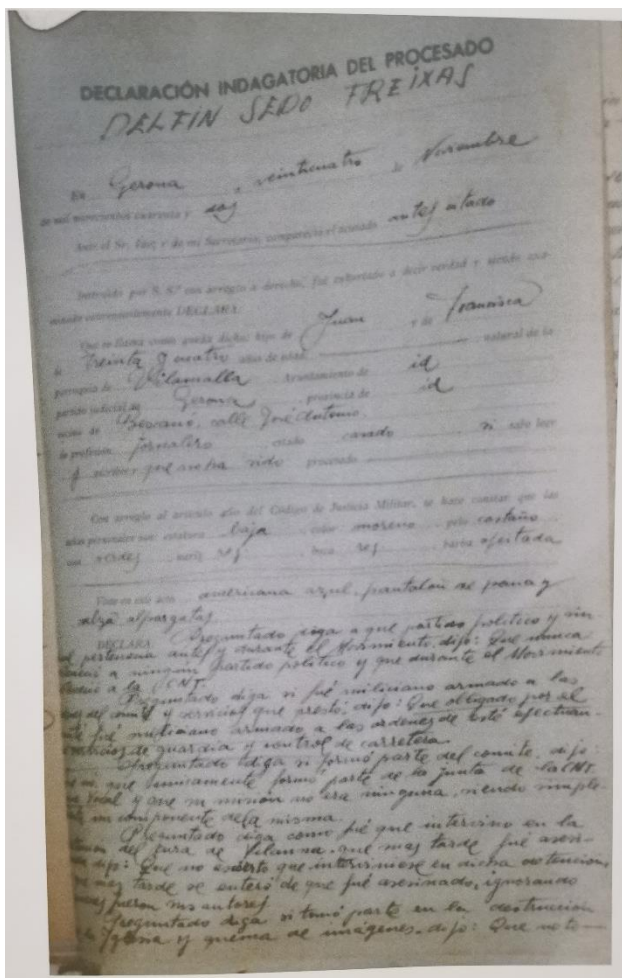 DECLARACIÓN INDAGATORIA DEL PROCESADO
DELFIN SEDO FREIXAS
En Gerona a veinticuatro de Noviembre
de mil novecientos cuarenta y dos
Ante el Sr. Juez y de mi Secretario, comparece el acusado antes citado
Instruido por S. S.ª con arreglo a derecho, fué exhortado a decir verdad y siendo
convenientemente DECLARA:
Que se llama como queda dicho; hijo de Juan y de Francisca
de treinta y cuatro años de edad, natural de la
parroquia de Vilamalla Ayuntamiento de id
partido judicial de Gerona provincia de id
vecino de Bescanó, calle José Antonio,
de profesión jornalero estado casado si sabe leer
y escribir y que no ha sido procesado
Con arreglo al artículo del Código de Justicia Militar, se hace constar que las
señas personales son: estatura baja color moreno pelo castaño
ojos verdes nariz reg boca reg barba afeitada
Viste en este acto americana azul, pantalón de pana y
calza alpargatas
DECLARA: Preguntado diga a que partido politico y sin-
pertenecia antes y durante el Movimiento, dijo: Que nunca
a ningún partido politico y que durante el Movimiento
a la CNT.
Preguntado diga si fué miliciano armado a las
del comité y servicios que prestó, dijo: Que obligado por el
fué miliciano armado a las ordenes de este efectuan-
servicios de guardia y control de carretera.
Preguntado diga si formó parte del comite, dijo:
que no, que unicamente formó parte de la Junta de la CNT.
vocal y que su mision no era ninguna, siendo simple-
un componente de la misma.
Preguntado diga como fué que intervino en la
del cura de Vilanna, que mas tarde fué asesi-
dijo: Que no es cierto que interviniese en dicha detencion
mas tarde se enteró de que fué asesinado, ignorando
fueron sus autores
Preguntado diga si tomó parte en la destruccion
Iglesia y quema de imágenes, dijo: Que no to-